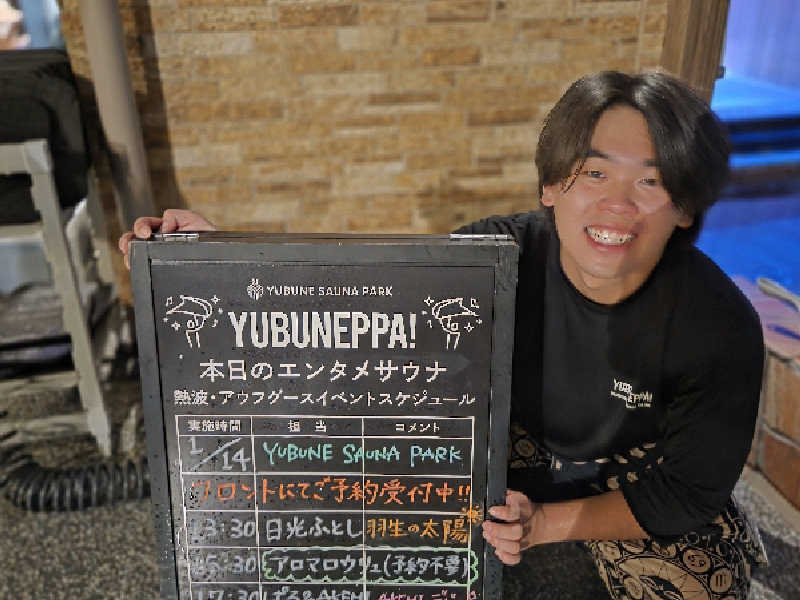 YUBUNE SAUNA PARK
YUBUNEPPA!
本日のエンタメサウナ
熱波・アウフグースイベントスケジュール
実施時間 担当 コメント
1/14 YUBUNE SAUNA PARK
フロントにてご予約受付中!!
13:30 日光ふとし 羽生の太陽
15:30 アロマロウリュ(予約不要)
17:30
YUBUNEPPA!